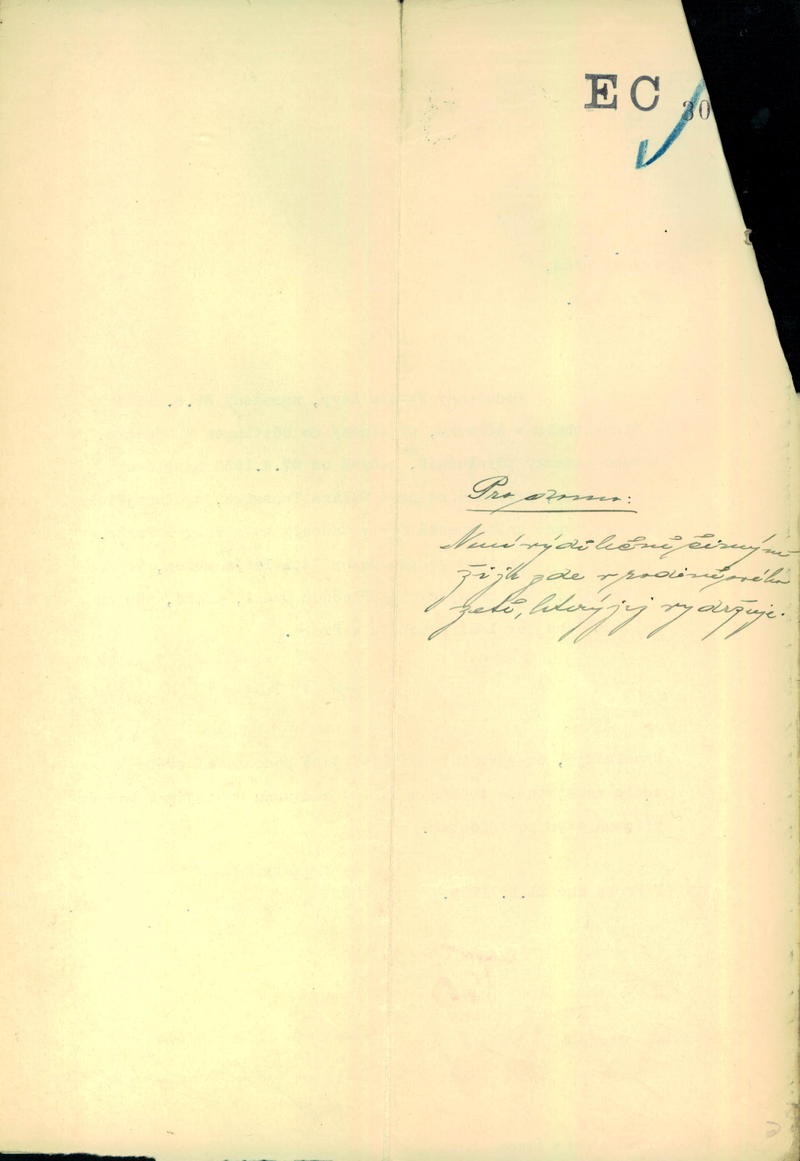 EC 30
Pro domo:
Není výdělečně činným
žije zde v rodině svého
zetě, který jej vydržuje.